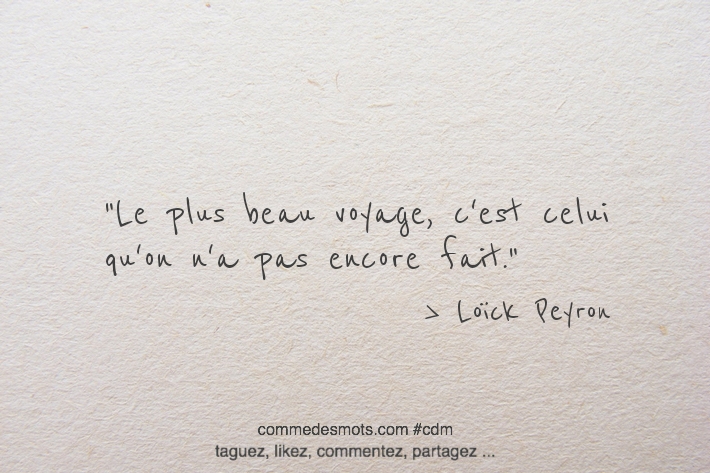 "Le plus beau voyage, c'est celui
qu'on n'a pas encore fait."
> Loïck Peyron
commedesmots.com #cdm
taguez, likez, commentez, partagez ...